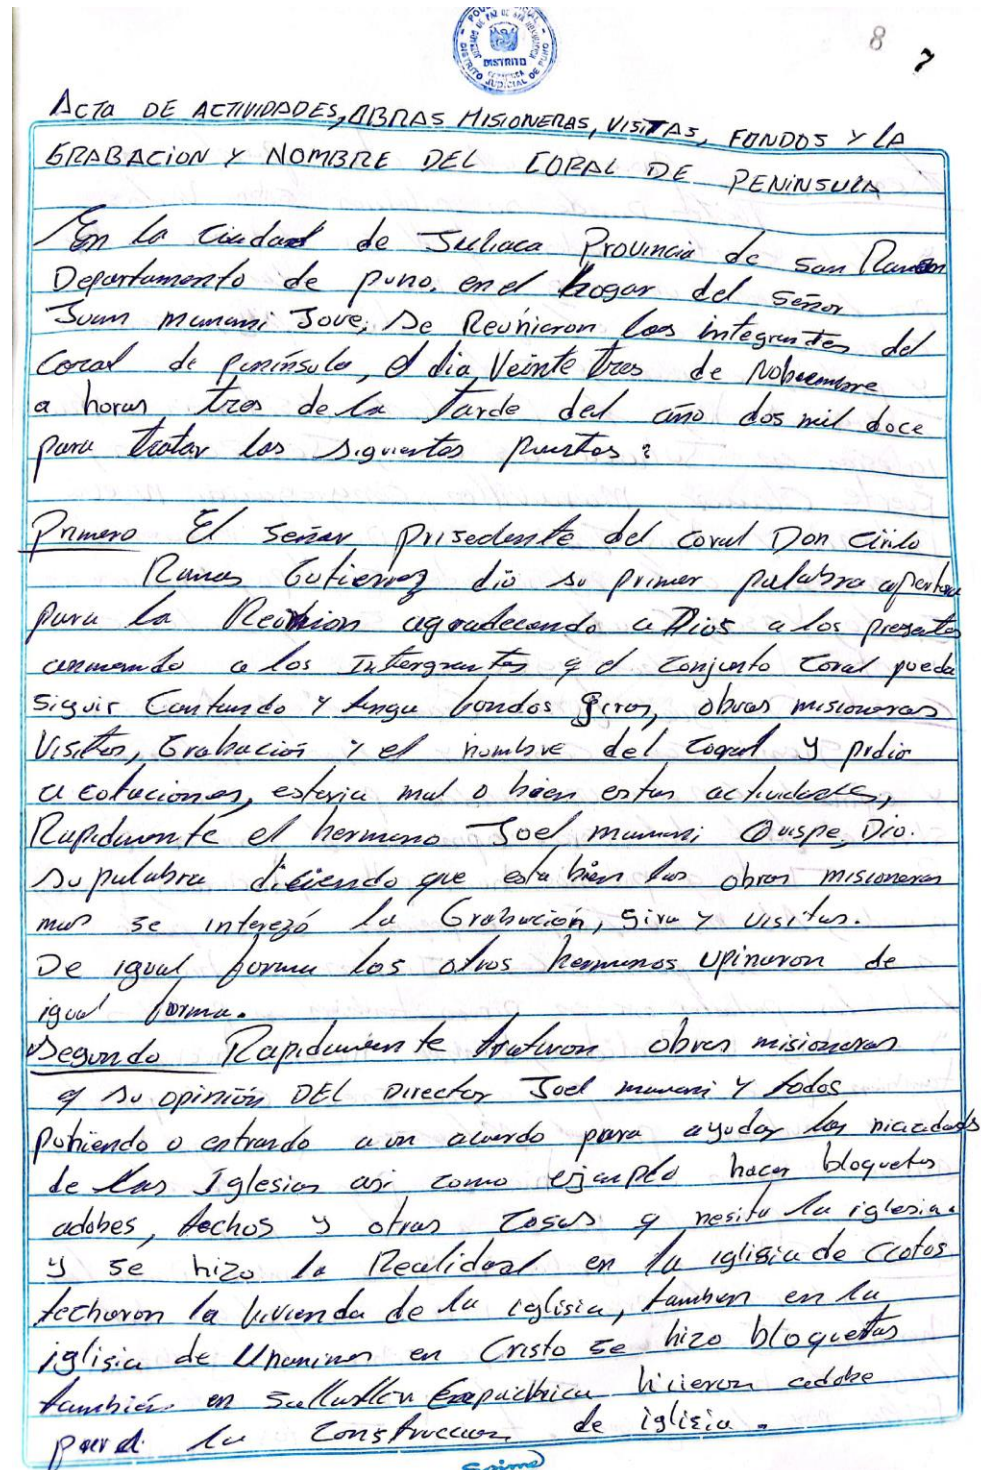 8 7
DISTRITO
JUDICIAL DE PUNO
ACTA DE ACTIVIDADES, OBRAS MISIONERAS, VISITAS, FONDOS Y LA
GRABACION Y NOMBRE DEL CORAL DE PENINSULA
En la Ciudad de Juliaca Provincia de San Roman
Departamento de puno, en el hogar del señor
Juan mamani Jove; se Reunieron los integrantes del
Coral de península, el dia Veinte tres de Nobiembre
a horas tres de la tarde del año dos mil doce
para tratar los siguientes puntos:
Primero El señor prisedente del coral Don Cirilo
Ramos Gutierrez dió su primer palabra apertura
para la Reunion agradecendo a Dios a los presentes
anmando a los Intergrantes q el conjunto coral pueda
siguir Cantando y tenga fondos giras, obras misioneras
Visitas, Grabación y el nombre del coral y pidio
a cotaciones, estaria mal o bien estas actividades,
Rapidamente el hermano Joel mamani Quispe, Dio.
su palabra diciendo que esta bien las obras misioneras
mas se interezó la Grabación, Gira y visitas.
De igual forma los otros hermanos upinaron de
igual forma.
Segundo Rapidamente trataron obras misioneras
q su opinión DEL Director Joel mamani y todos
puniendo o entrando a un acuerdo para ayudar las nicidads
de las Iglesias asi como ejemplo hacer bloquetas
adobes, techos y otras cosas q nesita la iglesia.
y se hizo la Realidad en la iglisia de Ccotos
techaron la vivienda de la iglisia, tambien en la
iglisia de Unanimes en Cristo se hizo bloquetas
también en hicieron adobe
para la construccion de iglisia.